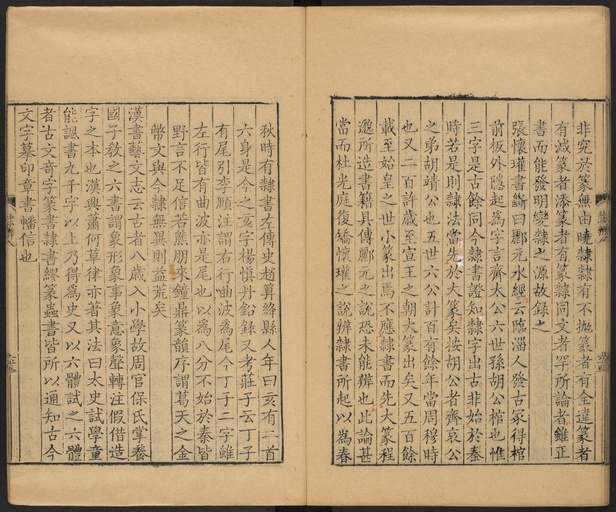 非究於篆無由曉隸隸有不拋篆者有全違篆者
有減篆者添篆者有篆隸同文者罕所論者雖正
書而能發明變隸之源故錄之
張懷瓘書斷曰酈元水經云臨淄人發古冢得棺
前板外隱起爲字言齊太公六世孫胡公棺也惟
三字是古餘同今隸書證知隸字出古非始於秦
時若是則隸法當先於大篆矣按胡公者齊哀公
之弟胡靖公也五世六公計百有餘年當周穆時
也又二百許歲至宣王之朝大篆出矣又五百餘
載至始皇之世小篆出焉不應隸書而先大篆程
邈所造書籍具傳酈元之說恐未能辨也此論甚
當而杜光庭復矯懷瓘之說辨隸書所起以爲春
秋時有隸書左傳史趙算絳縣人年曰亥有二首
六身是今之亥字楊愼丹鉛錄又考莊子云丁子
有尾引李頤注謂右行曲波爲尾今丁子二字雖
左行皆有曲波亦是尾也以爲八分不始於秦皆
野言不足信若熊朋來鐘鼎篆韻序謂葛天之金
幣文與今隸無異則益荒矣
漢書藝文志云古者八歲入小學故周官保氏掌養
國子敎之六書謂象形象事象意象聲轉注假借造
字之本也漢興蕭何草律亦著其法曰太史試學童
能諷書九千字以上乃得爲史又以六體試之六體
者古文奇字篆書隸書繆篆蟲書皆所以通知古今
文字摹印章書幡信也